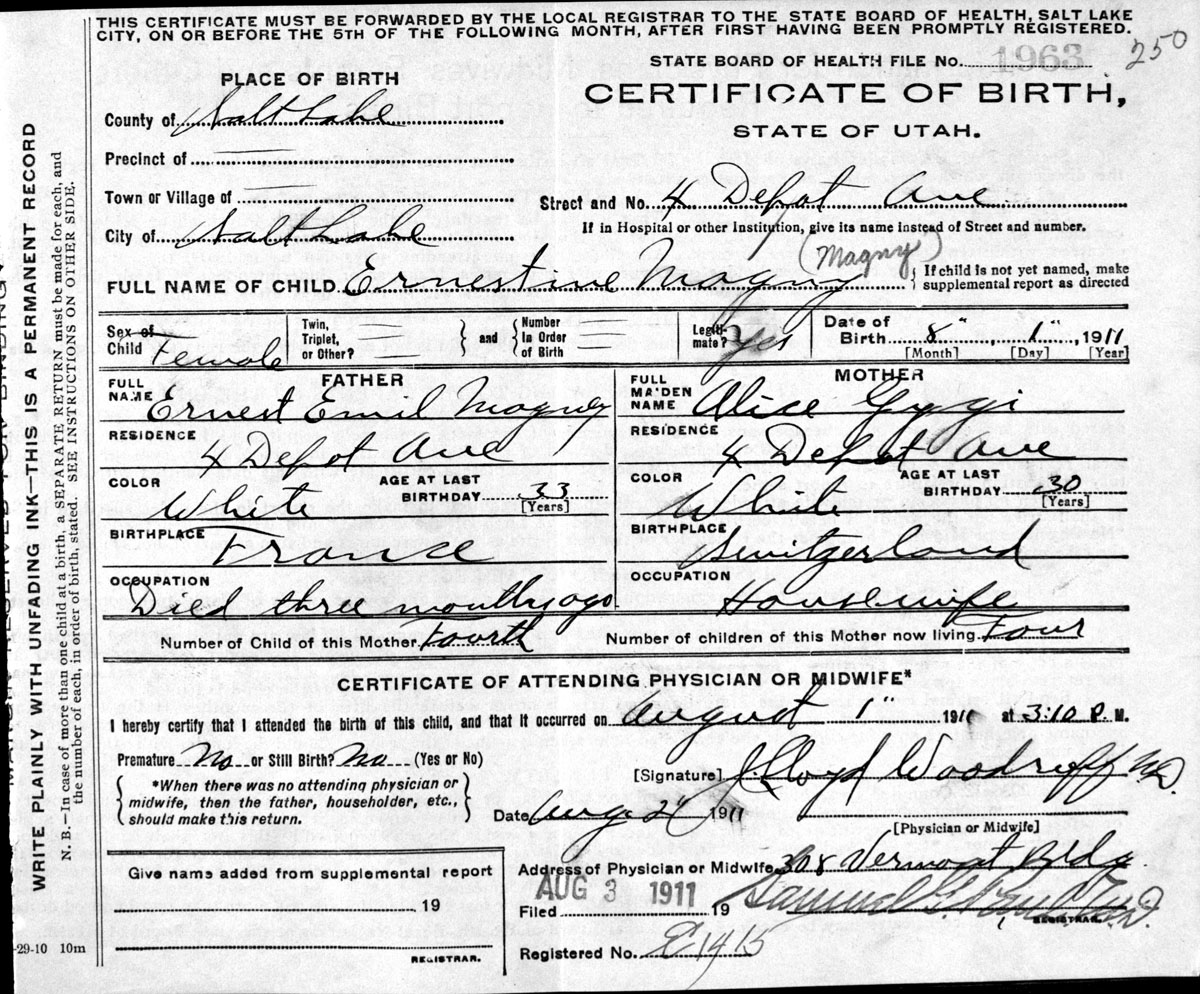 THIS CERTIFICATE MUST BE FORWARDED BY THE LOCAL REGISTRAR TO THE STATE BOARD OF HEALTH, SALT LAKE
CITY, ON OR BEFORE THE 5TH OF THE FOLLOWING MONTH, AFTER FIRST HAVING BEEN PROMPTLY REGISTERED.
250
STATE BOARD OF HEALTH FILE No. 1963
CERTIFICATE OF BIRTH,
STATE OF UTAH.
PLACE OF BIRTH
County of Salt Lake
Precinct of
Town or Village of
City of Salt Lake
Street and No. 4 Depot Ave
If in Hospital or other Institution, give its name instead of Street and number.
(Magny)
FULL NAME OF CHILD Ernestine Magny
{ If child is not yet named, make
supplemental report as directed
Sex of
Child Female
Twin,
Triplet,
or Other?
} and {
Number
In Order
of Birth
Legiti-
mate? Yes
Date of
Birth 8" , 1" , 1911
[Month] [Day] [Year]
FATHER
FULL
NAME Ernest Emil Magney
RESIDENCE
4 Depot Ave
COLOR
White
AGE AT LAST
BIRTHDAY 33
[Years]
BIRTHPLACE
France
OCCUPATION
Died three months ago
MOTHER
FULL
MAIDEN
NAME Alice Gygi
RESIDENCE
4 Depot Ave
COLOR
White
AGE AT LAST
BIRTHDAY 30
[Years]
BIRTHPLACE
Switzerland
OCCUPATION
Housewife
Number of Child of this Mother Fourth
Number of children of this Mother now living Four
CERTIFICATE OF ATTENDING PHYSICIAN OR MIDWIFE*
I hereby certify that I attended the birth of this child, and that it occurred on August 1" 1911 at 3:10 P. M.
Premature No or Still Birth? No (Yes or No)
{ *When there was no attending physician or
midwife, then the father, householder, etc.,
should make this return. }
[Signature] Lloyd Woodruff M.D.
[Physician or Midwife]
Date Aug 2" 1911
Address of Physician or Midwife 308 Vermont Bldg
Filed AUG 3 1911 19
Samuel G.
REGISTRAR.
Registered No. E1415
Give name added from supplemental report
19
REGISTRAR.
-29-10 10m
WRITE PLAINLY WITH UNFADING INK—THIS IS A PERMANENT RECORD
N. B.—In case of more than one child at a birth, a SEPARATE RETURN must be made for each, and
the number of each, in order of birth, stated. SEE INSTRUCTIONS ON OTHER SIDE.